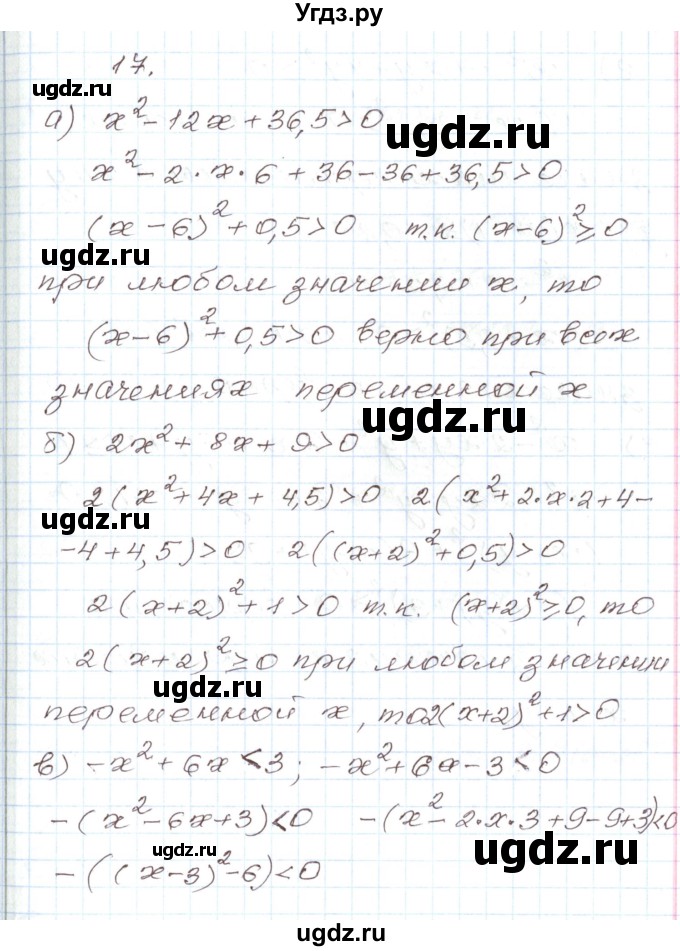 Угдз.ру
17.
ugdz.ru
а) x² - 12x + 36,5 > 0
ugdz.ru
x² - 2·x·6 + 36 - 36 + 36,5 > 0
(x - 6)² + 0,5 > 0 т.к. (x - 6)² ≥ 0
ugdz.ru
при любом значении x, то
(x - 6)² + 0,5 > 0 верно при всех
значениях переменной x
ugdz.ru
б) 2x² + 8x + 9 > 0
2(x² + 4x + 4,5) > 0 2(x² + 2·x·2 + 4 -
ugdz.ru
- 4 + 4,5) > 0 2((x + 2)² + 0,5) > 0
2(x + 2)² + 1 > 0 т.к. (x + 2)² ≥ 0, то
2(x + 2)² ≥ 0 при любом значении
ugdz.ru
переменной x, то 2(x + 2)² + 1 > 0
в) - x² + 6x < 3; - x² + 6x - 3 < 0
- (x² - 6x + 3) < 0 - (x² - 2·x·3 + 9 - 9 + 3) < 0
ugdz.ru
ugdz.ru
- ((x - 3)² - 6) < 0
ugdz.ru